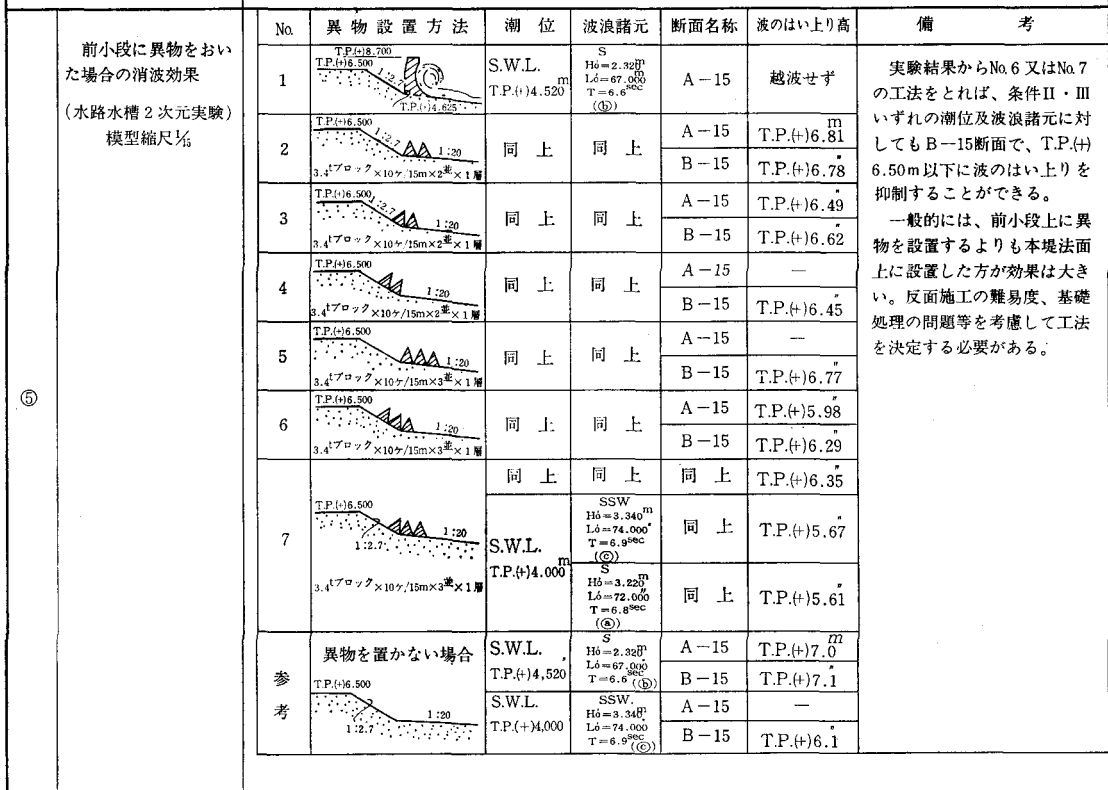 ⑤
前小段に異物をおい
た場合の消波効果
(水路水槽2次元実験)
模型縮尺1/15
No. 異物設置方法 潮位 波浪諸元 断面名称 波のはい上り高 備考
1
T.P.(+)8.700
T.P.(+)6.500
1:2.7
T.P.(+)4.625
S.W.L.
T.P.(+)4.520m
S
Hó=2.320m
Ló=67.000m
T=6.6sec
(ⓑ)
A-15 越波せず
2
T.P.(+)6.500
1:2.7
1:20
3.4tブロック×10ケ/15m×2並×1層
同上 同上
A-15 T.P.(+)6.81m
B-15 T.P.(+)6.78〃
3
T.P.(+)6.500
1:2.7
1:20
3.4tブロック×10ケ/15m×2並×1層
同上 同上
A-15 T.P.(+)6.49〃
B-15 T.P.(+)6.62〃
4
T.P.(+)6.500
1:20
3.4tブロック×10ケ/15m×2並×1層
同上 同上
A-15 —
B-15 T.P.(+)6.45〃
5
T.P.(+)6.500
1:20
3.4tブロック×10ケ/15m×3並×1層
同上 同上
A-15 —
B-15 T.P.(+)6.77〃
6
T.P.(+)6.500
1:20
3.4tブロック×10ケ/15m×3並×1層
同上 同上
A-15 T.P.(+)5.98〃
B-15 T.P.(+)6.29〃
7
T.P.(+)6.500
1:20
1:2.7
3.4tブロック×10ケ/15m×3並×1層
同上 同上 同上 T.P.(+)6.35〃
S.W.L.
T.P.(+)4.000m
SSW
Hó=3.340m
Ló=74.000〃
T=6.9sec
(ⓒ)
同上 T.P.(+)5.67〃
S
Hó=3.220m
Ló=72.000〃
T=6.8sec
(ⓐ)
同上 T.P.(+)5.61〃
参考
異物を置かない場合
T.P.(+)6.500
1:20
1:2.7
S.W.L.
T.P.(+)4,520
S
Hó=2.320m
Ló=67.000
T=6.6sec
(ⓑ)
A-15 T.P.(+)7.0m
B-15 T.P.(+)7.1〃
S.W.L.
T.P.(+)4,000
SSW.
Hó=3.340m
Ló=74.000
T=6.9sec
(ⓒ)
A-15 —
B-15 T.P.(+)6.1〃
実験結果からNo.6又はNo.7
の工法をとれば、条件II・III
いずれの潮位及波浪諸元に対
してもB-15断面で、T.P.(+)
6.50m以下に波のはい上りを
抑制することができる。
一般的には、前小段上に異
物を設置するよりも本堤法面
上に設置した方が効果は大き
い。反面施工の難易度、基礎
処理の問題等を考慮して工法
を決定する必要がある。